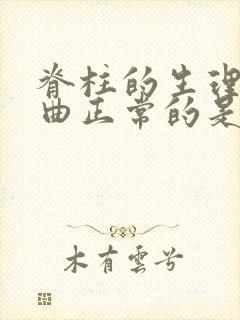 脊柱的生理
曲正常的是
木有雲兮